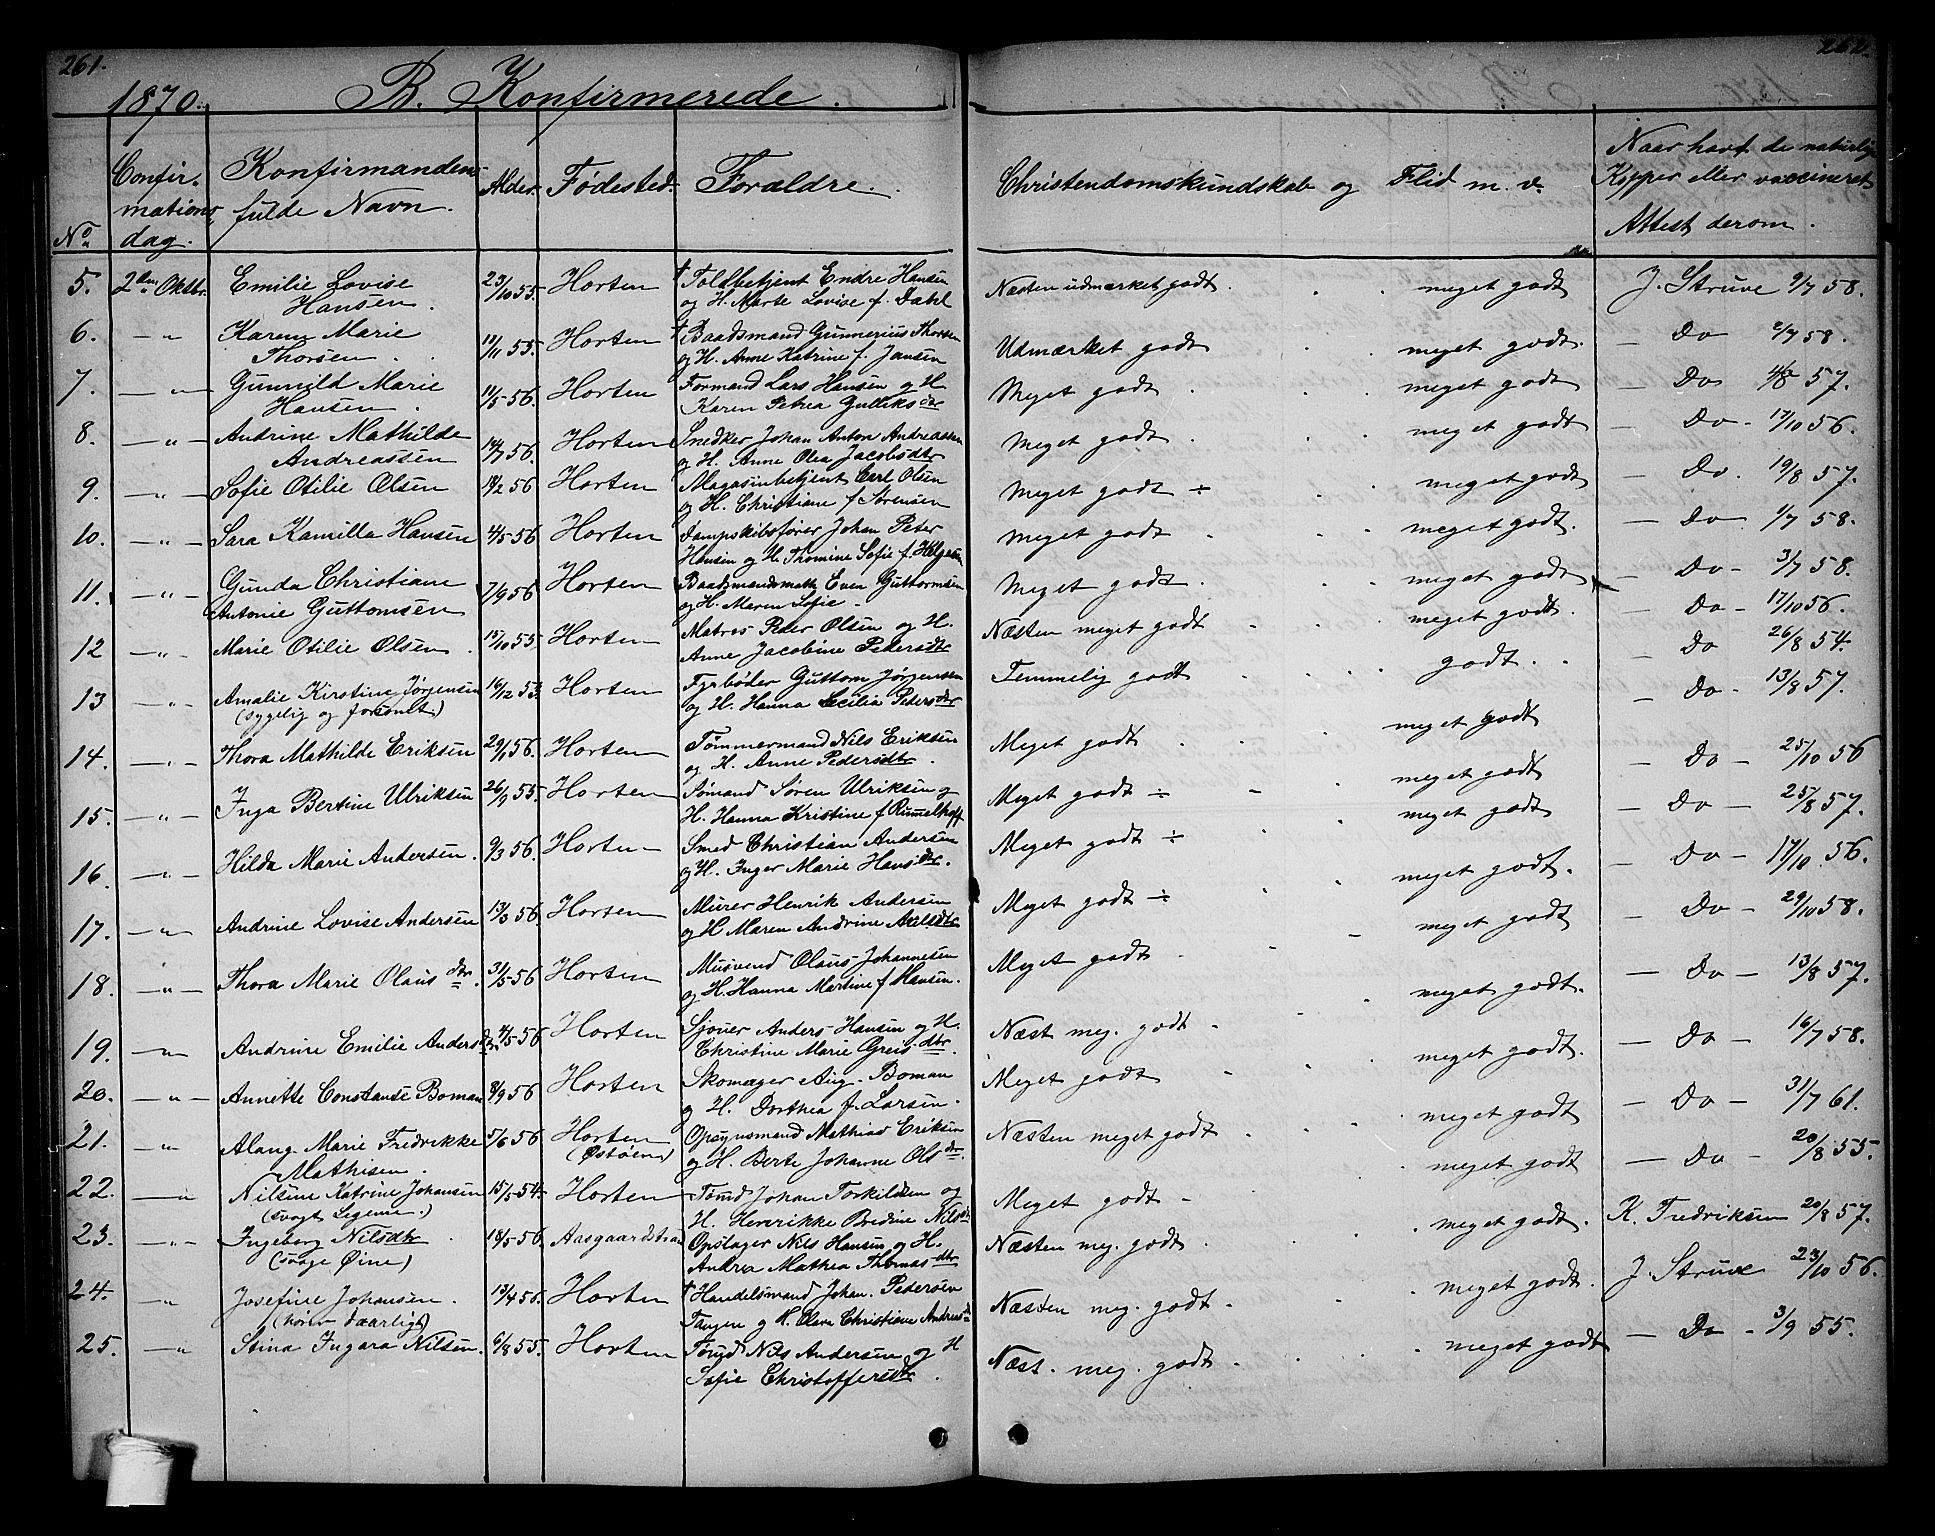 261. 262.
1870. B. Konfirmerede.
No. Confirmationsdag. Konfirmandens fulde Navn. Alder. Fødested. Forældre. Christendomskundskab og Flid m. v. Naar havt de naturlige Kopper eller vaccineret Attest derom.
5. 2den Oktbr. Emilie Lovise 23/10 55. Horten † Toldbetjent Endre Hansen Næsten udmærket godt. meget godt J. Struve 9/7 58.
Hansen. og H. Marte Lovise f. Dahl
6. — " Karen Marie 11/11 55. Horten † Baadsmand Gunnerius Thorsen Udmærket godt meget godt. — Do 2/7 58.
Thorsen. og H. Anne Katrine f. Jansen
7. — " — Gunnild Marie 11/5 56. Horten Formand Lars Hansen og H. Meget godt meget godt — Do 57.
Hansen. Karen Petrea Gulliksdtr
8. — " — Andrine Mathilde 14/7 56. Horten Snedker Johan Anton Andreassen Meget godt meget godt — Do - 17/10 56.
Andreassen og H. Anne Olea Jacobsdtr
9. — " — Sofie Otilie Olsen 18/2 56 Horten Magasinbetjent Carl Olsen Meget godt ÷ meget godt — Do. 19/8 57.
og H. Christiane f Sørensen
10. — " — Sara Kamilla Hansen 4/5 56 Horten Dampskibsfører Johan Peter Meget godt meget godt. — Do 1/7 58.
Hansen og H. Thomine Sofie f. Helgesen
11. — " — Gunda Christiane 7/9 56 Horten Baadsmandsmath Even Guttormsen Meget godt meget godt — Do - 3/7 58.
Antonie Guttomsen og H. Maren Sofie -
12 — " — Marie Otilie Olsen. 15/10 55. Horten Matros Peder Olsen og H. Næsten meget godt meget godt. — Do - 17/10 56.
Anne Jacobine Pedersdtr
13 — " — Amalie Kirstine Jørgensen 16/12 53. Horten Fyrbøder Guttom Jørgensen Temmelig godt godt. — Do 26/8 54.
(sygelig og forsømt) og H. Hanna Cecilia Pedersdtr
14. — " — Thora Mathilde Eriksen 29/1 56. Horten Tømmermand Nils Eriksen Meget godt meget godt — Do - 13/8 57.
og H. Anne Pedersdtr.
15. — " — Inga Bertine Ulriksen 26/9 55. Horten Sømand Søren Ulriksen og Meget godt ÷ meget godt — Do — 25/10 56
H. Hanna Kristine f Rummelhoff
16. — " — Hilda Marie Andersen. 9/3 56. Horten Smed Christian Andersen Meget godt ÷ meget godt — Do — 25/8 57.
og H. Inger Marie Hansdtr.
17. — " — Andrine Lovise Andersen 13/3 56. Horten Murer Henrik Andersen Meget godt ÷ meget godt. — Do — 17/10 56.
og H Maren Andrine Axelsdtr
18. — " — Thora Marie Olausdtr. 31/5 56 Horten Musvend Olaus Johannesen Meget godt meget godt — Do — 29/10 58.
og H. Hanna Martine f Hansen.
19. — " Andrine Emilie Andersdtr. 4/5 56 Horten Sjouer Anders Hansen og H. Næst meg. godt meget godt. — Do — 13/8 57.
Christine Marie Greisdtr.
20. — " — Annette Constanse Boman 8/9 56 Horten Skomager Aug. Boman Meget godt meget godt. — Do — 16/7 58.
og H. Dorthea f. Larsen.
21. — " Alang Marie Fredrikke 5/6 56 Horten Opsynsmand Mathias Eriksen Næsten meget godt meget godt — Do — 31/7 61.
Mathisen. (Østøen) og H. Berte Johanne Olsdtr.
22. — " Nilsine Katrine Johansen 15/5 54. Horten Tømd Johan Torkildsen og Meget godt meget godt — Do — 20/8 55.
(svagt Legeme.) H. Henrikke Bredine Nilsdtr
23. — " — Ingeborg Nilsdtr 18/5 56. Aasgaardstran Opslager Nils Hansen og H. Næsten meg. godt meget godt. K. Fredriksen 20/8 57.
(svage Øine) Andrea Mathea Thomasdtr
24. — " Josefine Johansen. 13/4 56. Horten † Handelsmand Johan Pedersen Næsten meg. godt meget godt. J. Struve 23/10 56.
(hører daarligt) Tangen og H. Olava Christiane Andersdtr
25. — " Stina Ingara Nilsen. 6/8 55. Horten Tømd Nils Andersen og H Næst. meg. godt meget godt — Do - 3/9 55.
Sofie Christoffersdtr.